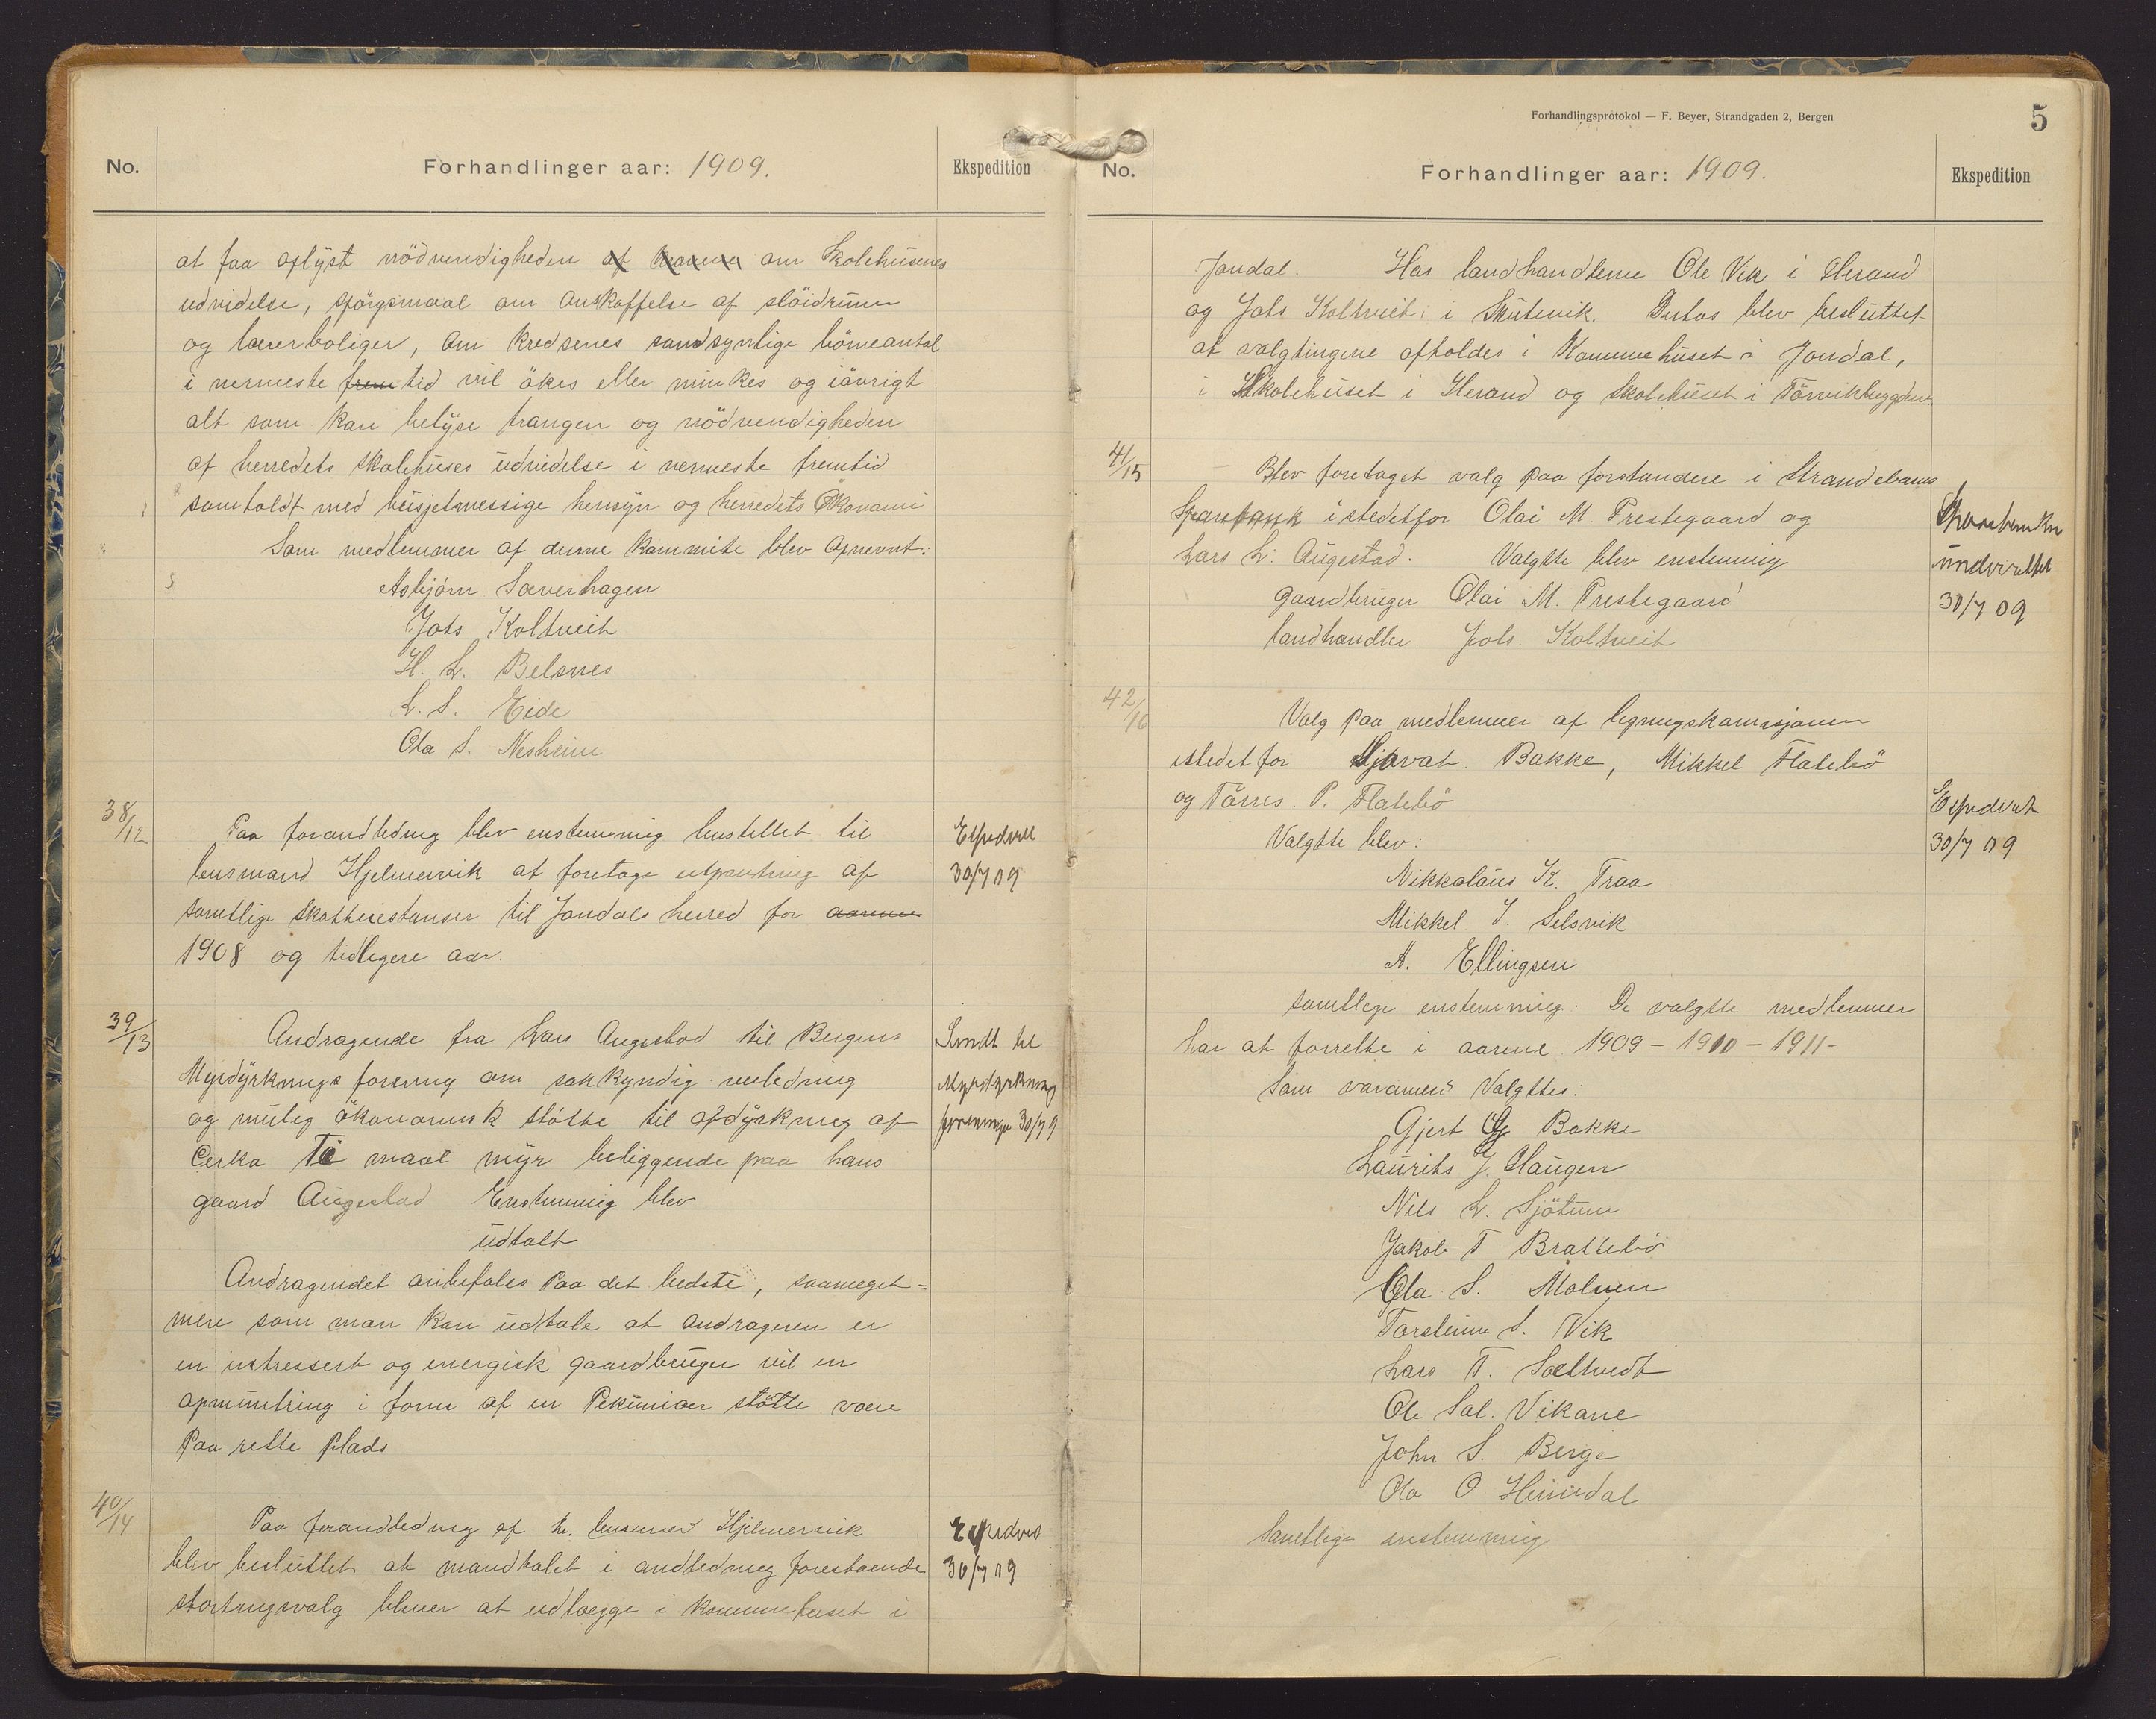 No.
Forhandlinger aar: 1909.
Ekspedition
at faa oplyst nödvendigheden af om Skolehusenes
udvidelse, spörgsmaal om anskaffelse af slöidrum
og lærerboliger, om kredsenes sandsynlige börneantal
i nermeste frem tid vil ökes eller minkes og iövrigt
alt som kan belyse trangen og nödvendigheden
af herredets skolehuses udvidelse i nermeste fremtid
samholdt med busjetmessige hensyn og herredets Ökonomi
Som medlemmer af denne kommite blev opnevnt:
Asbjörn Sæverhagen
Johs Koltveit
H. L. Belsnes
L. S. Eide
Ola S. Nesheim
38/12
Paa forandledning blev enstemmig henstillet til
lensmand Hjelmervik at foretage utpantning af
samtlige skatterestanser til Jondals herred for aarene
1908 og tidligere aar.
Expederet
30/7 09
39/13
Andragende fra Lars Augestad til Bergens
Myrdyrknings forening om sakkyndig veiledning
og mulig ökonomisk stötte til opdyrkning af
Cerka Ti maal myr beliggende paa hans
gaard Augestad Enstemmig blev
udtalt
Andragendet anbefales Paa det bedste, saameget=
mere som man kan udtale at andrageren er
en intressert og energisk gaardbruger vil en
opmuntring i form af en Pekuniær stötte være
Paa rette Plads
Sendt til
Myrdyrkning
foreningen 30/7 9
40/14
Paa forandledning af hr. lensmand Hjelmervik
blev besluttet at mandtalet i andledning forestaaende
stortingsvalg bliver at udlægge i kommunehuset i
Expederet
30/7 09
Forhandlingsprotokol — F. Beyer, Strandgaden 2, Bergen
5
No.
Forhandlinger aar: 1909.
Ekspedition
Jondal. Hos landhandlerne Ole Vik i Herand
og Johs Koltveit i Skutevik. Dertos blev besluttet
at valgtingene afholdes i Kommunehuset i Jondal,
i Skolehuset i Herand og skolehuset i Törvikbygden
41/15
Blev foretaget valg paa forstandere i Strandebarms
Sparebank istedetfor Olai M. Prestegaard og
Lars L. Augestad. Valgtte blev enstemmig
gaardbruger Olai M. Prestegaard
landhandler Johs. Koltveit
Sparebanken
underrettet
30/7 09
42/16
Valg paa medlemmer af ligningskomisjonen
istedetfor Sjovat Bakke, Mikkel Flatebö
og Törres P. Flatebö
Valgtte blev:
Nikkolaus K. Traa
Mikkel J. Selsvik
A. Ellingsen
samtlege enstemmig. De valgtte medlemmer
har at forrette i aarene 1909 - 1910 - 1911 -
Som varamen Valgttes:
Gjert G. Bakke
Laurits J. Haugen
Nils L. Sjötun
Jakob T Brattebö
Ola S. Molven
Torsteinn S. Vik
Lars T. Sæltvedt
Ole Sal. Vikane
John S. Berge
Ola O Herredal
Samtlige enstemmig
Expederet
30/7 09